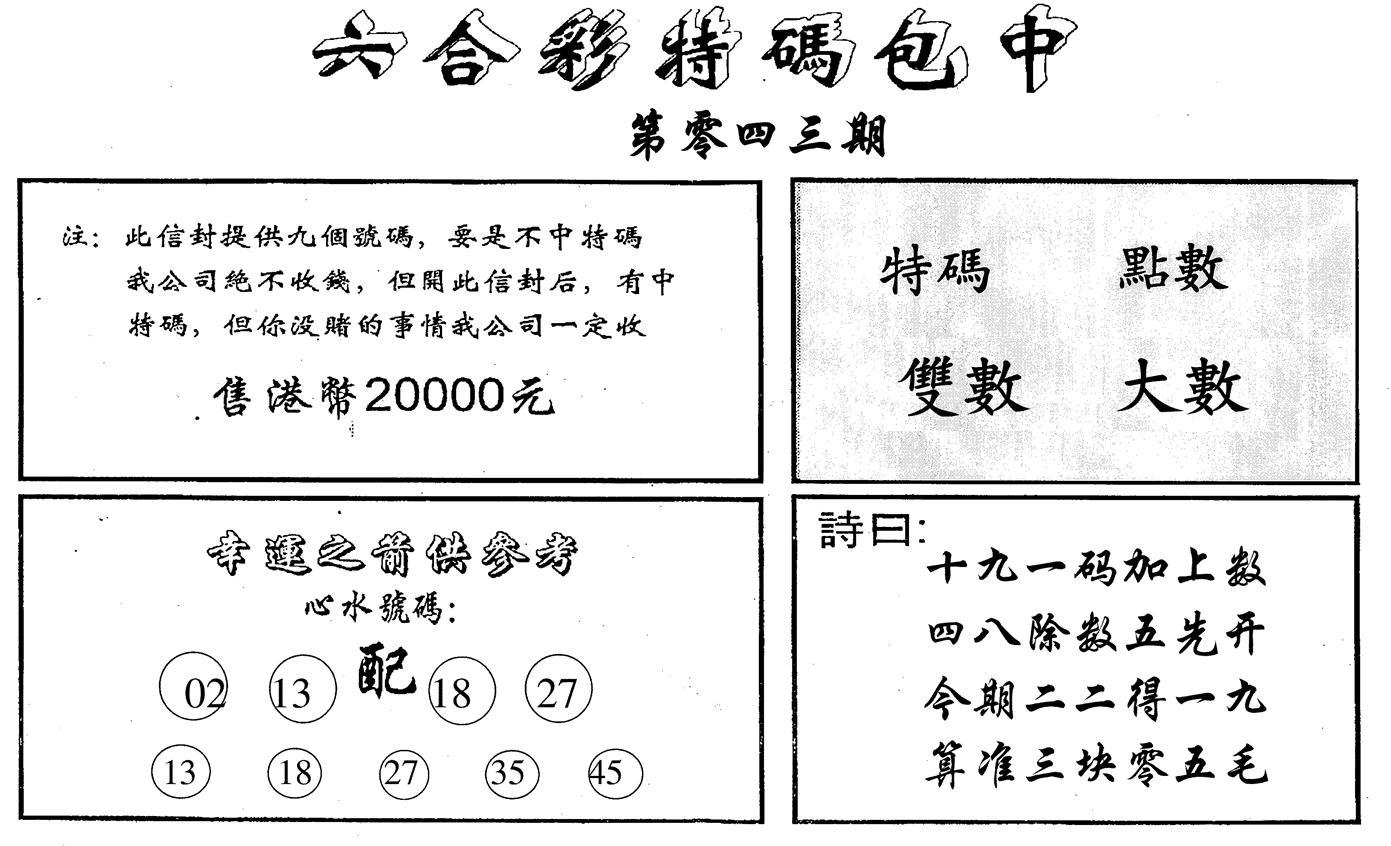 六合彩特碼包中
第零四三期
注：此信封提供九個號碼，要是不中特碼
我公司絕不收錢，但開此信封后，有中
特碼，但你没賭的事情我公司一定收
售港幣20000元
特碼 點數
雙數 大數
幸運之箭供參考
心水號碼：
02 13 配 18 27
13 18 27 35 45
詩曰：
十九一码加上数
四八除数五先开
今期二二得一九
算准三块零五毛